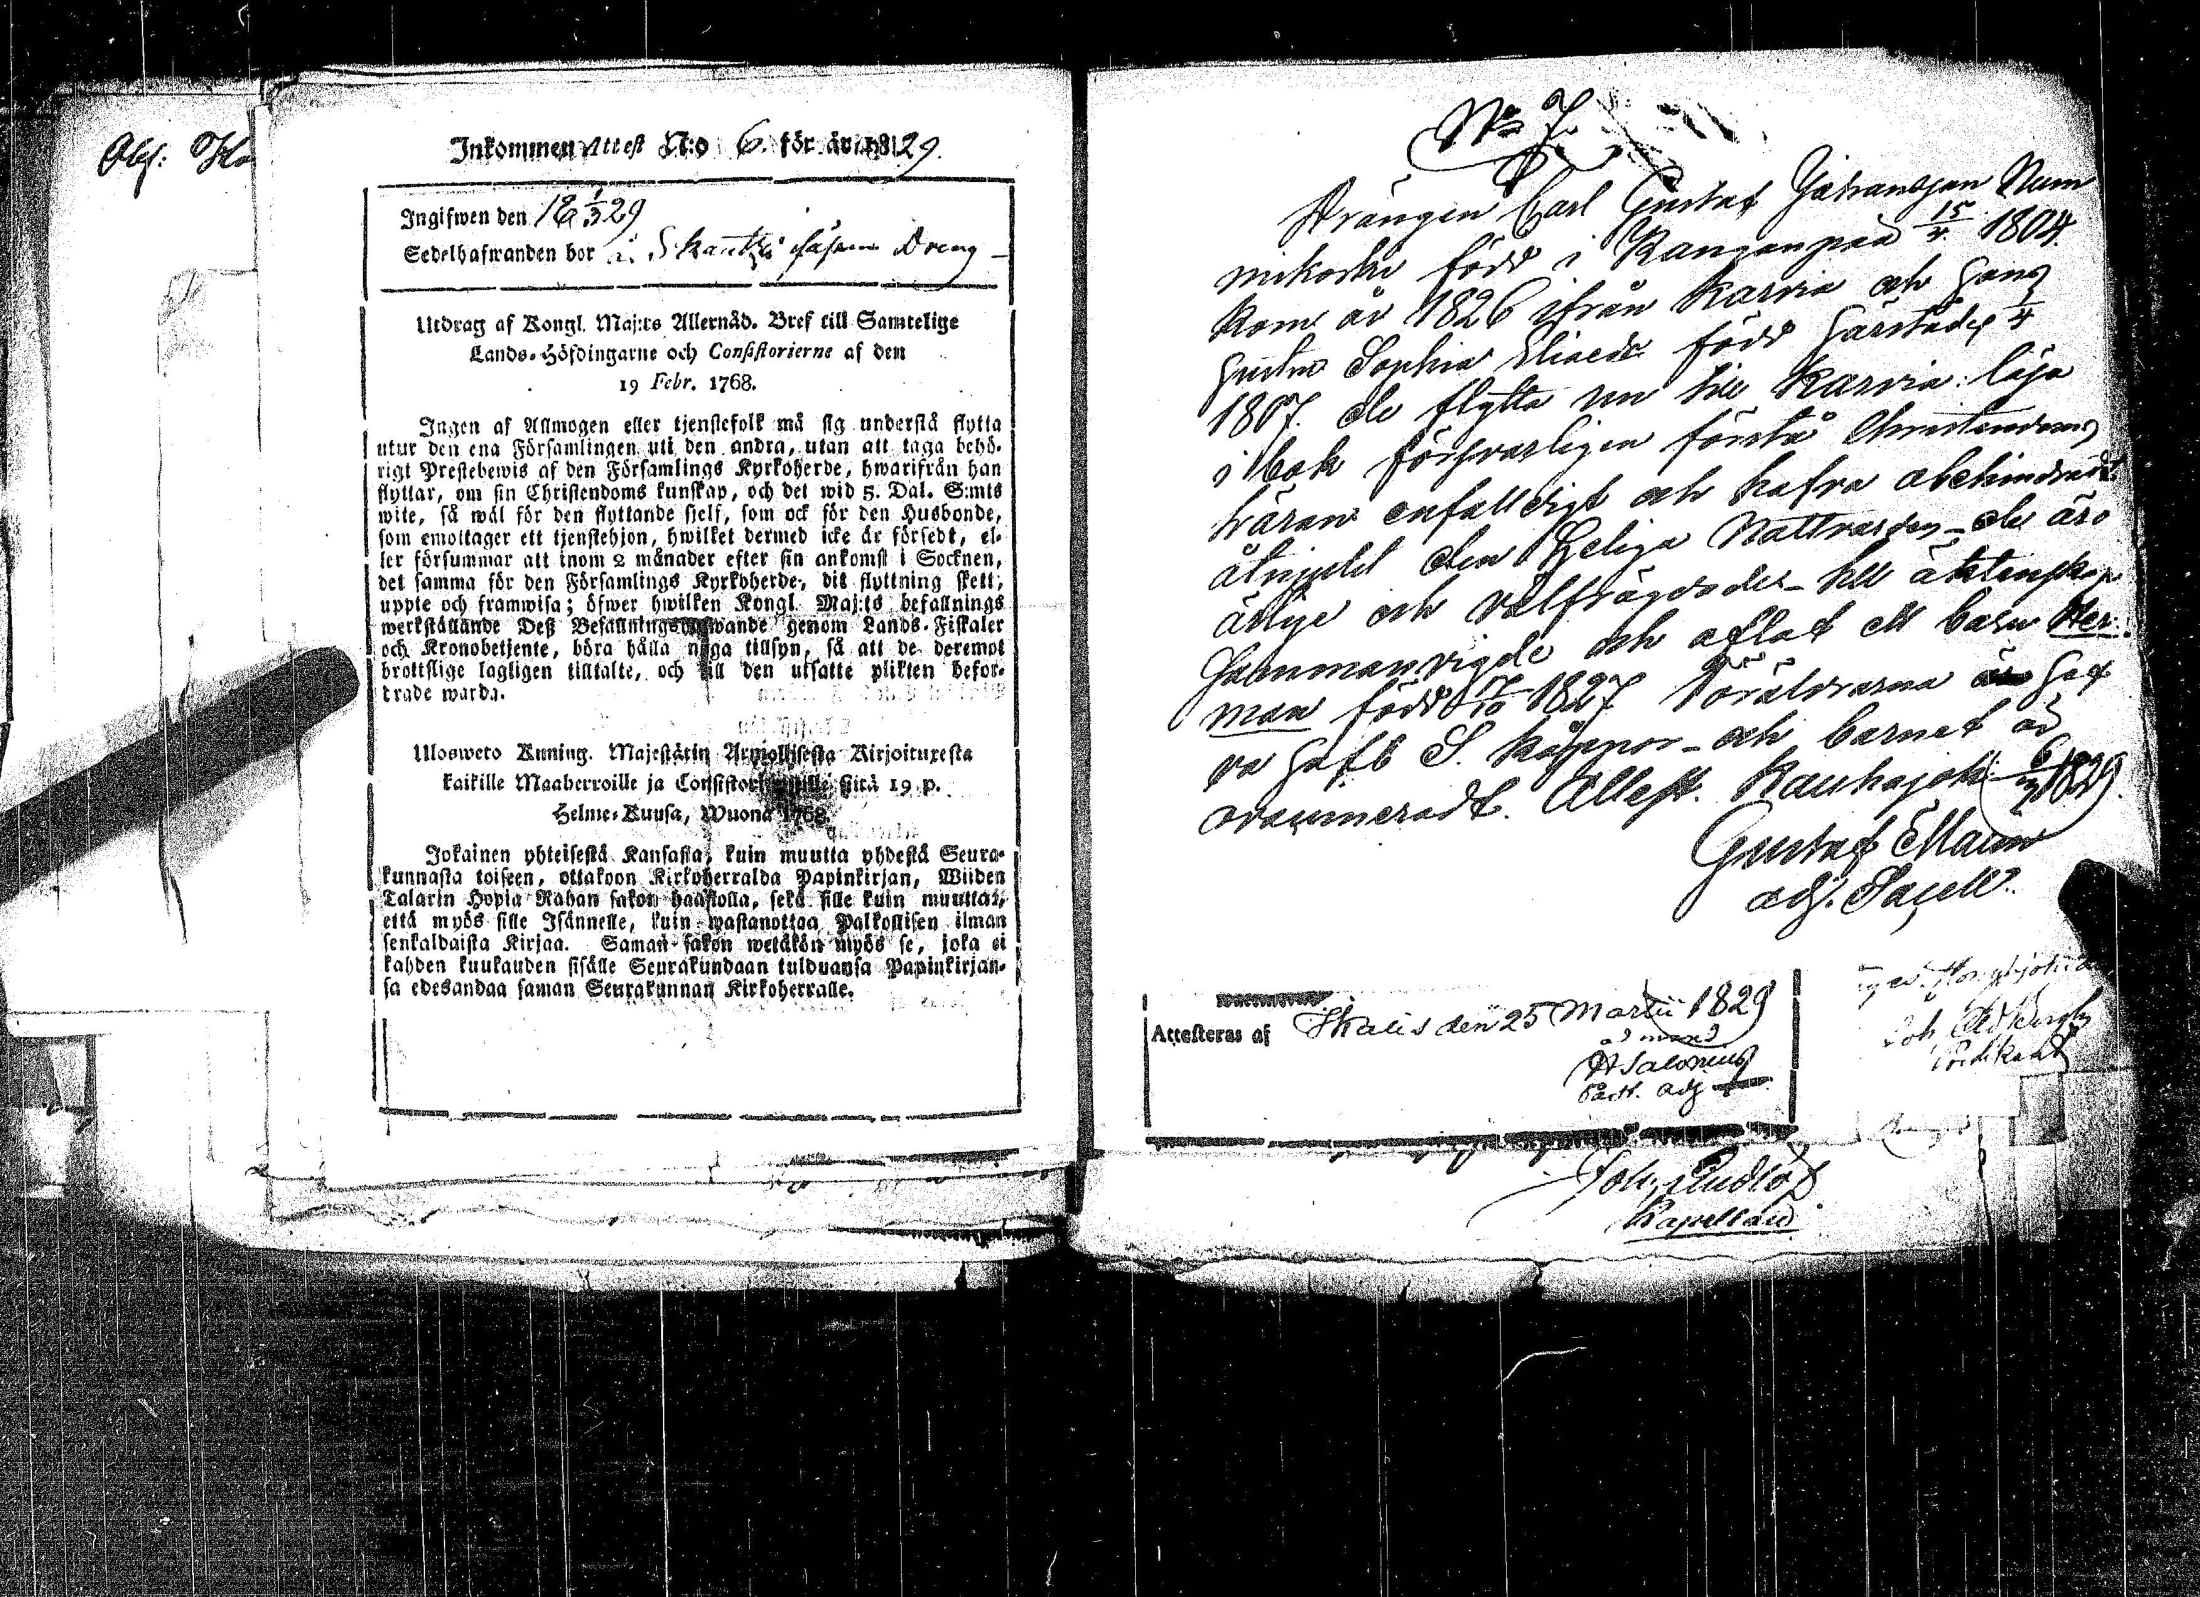 Inkommen Attest N:o 6. för år 1829.
Ingifwen den 18 1/3 29
Sedelhafwanden bor i Dreng
Utdrag af Kongl. Maj:ts Allernåd. Bref till Samtelige
Lands-Höfdingarne och Consistorierne af den
19 Febr. 1768.
Ingen af Allmogen eller tjenstefolk må sig understå flytta
utur den ena Församlingen uti den andra, utan att taga behö-
rigt Prestebewis af den Församlings Kyrkoherde, hwarifrån han
flyttar, om sin Christendoms kunskap, och det wid 5. Dal. S:mts
wite, så wäl för den flyttande sjelf, som ock för den Husbonde,
som emottager ett tjenstehjon, hwilket dermed icke är försedt, el-
ler försummar att inom 2 månader efter sin ankomst i Socknen,
det samma för den Församlings Kyrkoherde, dit flyttning skett,
uppte och framwisa; öfwer hwilken Kongl. Maj:ts befallnings
werkställande Deß Befallningshafwande genom Lands-Fiskaler
och Kronobetjente, böra hålla noga tillsyn, så att de deremot
brottslige lagligen tilltalte, och till den utsatte plikten befor-
trade warda.
Ulosweto Kuning. Majestätin Armollisesta Kirjoituxesta
kaikille Maaherroille ja Consistoriumille siitä 19 p.
Helme-Kuusa, Wuona 1768.
Jokainen yhteisestä Kansasta, kuin muutta yhdestä Seura-
kunnasta toiseen, ottakoon Kirkoherralda Papinkirjan, Wiiden
Talarin Hopia Rahan sakon haastolla, sekä sille kuin muuttaa,
että myös sille Isännelle, kuin wastanottaa Palkollisen ilman
senkaldaista Kirjaa. Saman sakon wetäkön myös se, joka ei
kahden kuukauden sisälle Seurakundaan tulduansa Papinkirjan-
sa edesandaa saman Seurakunnan Kirkoherralle.
No 7.
Drängen Carl Gustaf Num
mikoski född i 15/4 1804.
kom år 1826 ifrån Karvia och hans
hustru Sophia född härstädes 1/4
1807. de flytta nu till Karvia: läsa
i bok försvarligen förstå Christendoms
läran enfalldigt och hafva obehindradt
åtnjutit den Heliga Nattvarden - de äro
ärlige och välfrägdade - till äktenskap
Sammanvigde och aflat ett barn Her-
man född 17/10 1827 Föräldrarna haf
va haft S. koppor - och barnet är
ovaccineradt. Attest. Kauhajoki 6/3 1829
Gustaf
adj. Sacell.
Attesteras af Ikalis den 25 Martii 1829
ad mand
Salonius
Past. adj
Joh.
Kapellan